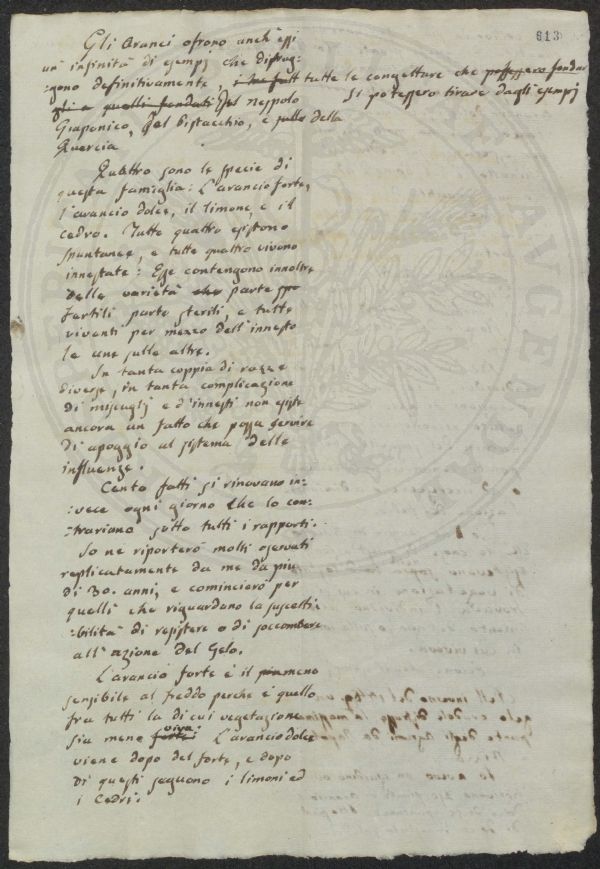 813
Gli Aranci ofrono anch'essi
un infinità di esempj che distrug-
:gono definitivamente, tutte le congetture che possessero fondar
gli e quelli fondati Del Nespolo si potessero tirare dagli esempj
Giaponico, del Pistacchio, e sulle della
Quercia
Quattro sono le specie di
questa famiglia: L'arancio forte,
l'arancio dolce, il limone, e il
cedro. Tutte quattro esistono
spontanee, e tutte quattro vivono
innestate: Esse contengono innoltre
delle varietà che parte spo
fertili parte sterili, e tutte
viventi per mezzo dell'innesto
le une sulle altre.
In tanta coppia di razze
diverse, in tanta complicazione
di miscuglj e d'innesti non esiste
ancora un fatto che possa servire
di apoggio al sistema delle
influenze.
Cento fatti si rinovano in-
:vece ogni giorno che lo con:
:trariano sotto tutti i rapporti.
Io ne riporterò molti osservati
replicatamente da me da più
di 30. anni, e comincierò per
quelli che riguardano la suscetti:
:bilità di resistere o di soccombere
all'azione del Gelo.
L'arancio forte è il più meno
sensibile al freddo perche è quello
fra tutti la di cui vegetazione
sia meno forte viva: L'arancio dolce
viene dopo del forte, e dopo
di questi seguono i limoni ed
i Cedri: